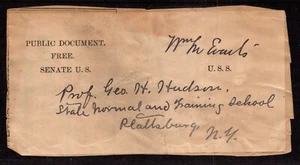 PUBLIC DOCUMENT.
FREE.
SENATE U. S.
Wm M Evarts
U. S. S.
Prof. Geo H. Hudson,
State Normal and Training School
Plattsburg
N.Y.